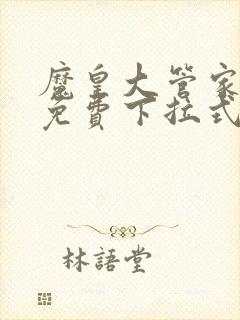 魔皇大管家
免費下拉式
林語堂